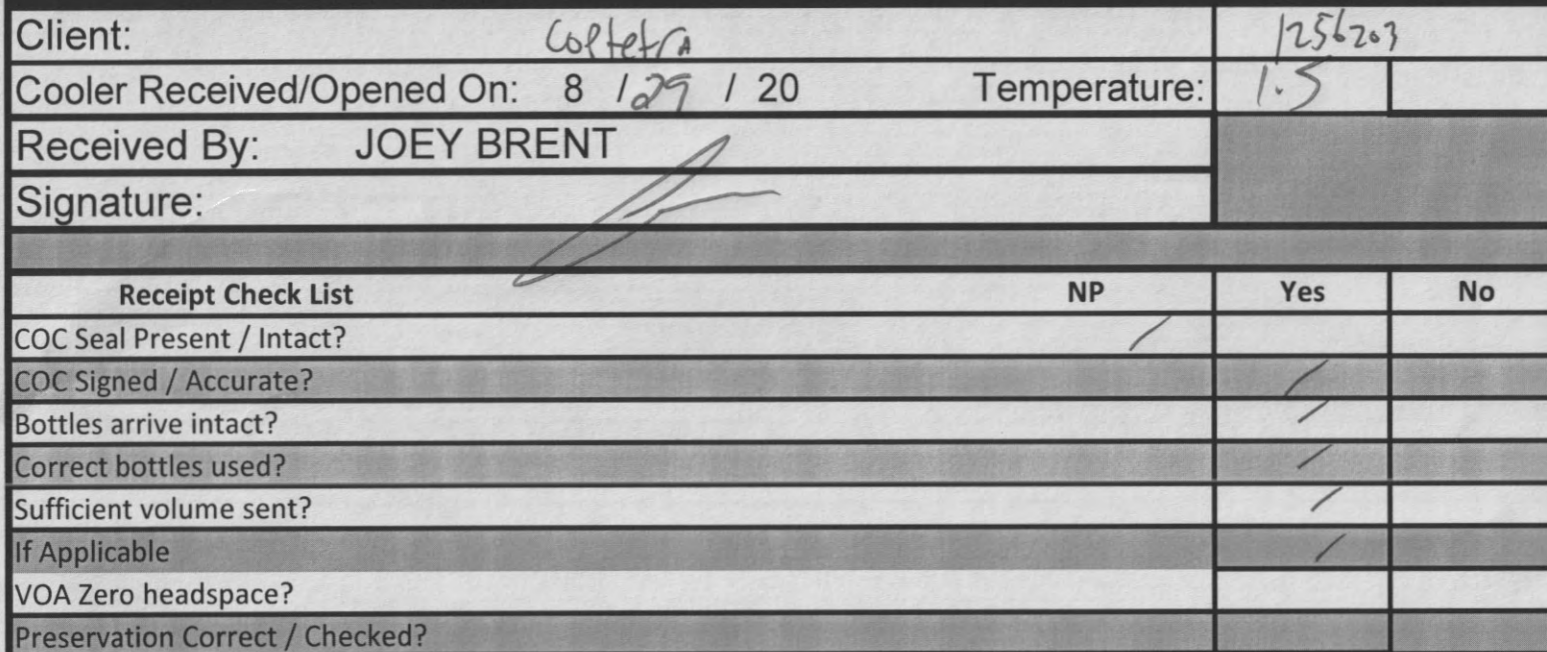 Client: CoPtetrA 1256203
Cooler Received/Opened On: 8 / 29 / 20 Temperature: 1.5
Received By: JOEY BRENT
Signature:
Receipt Check List NP Yes No
COC Seal Present / Intact? /
COC Signed / Accurate? /
Bottles arrive intact? /
Correct bottles used? /
Sufficient volume sent? /
If Applicable /
VOA Zero headspace?
Preservation Correct / Checked?